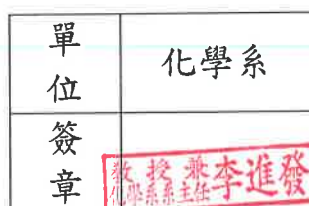 單位
化學系
簽章
教授兼
化學系系主任
李進發